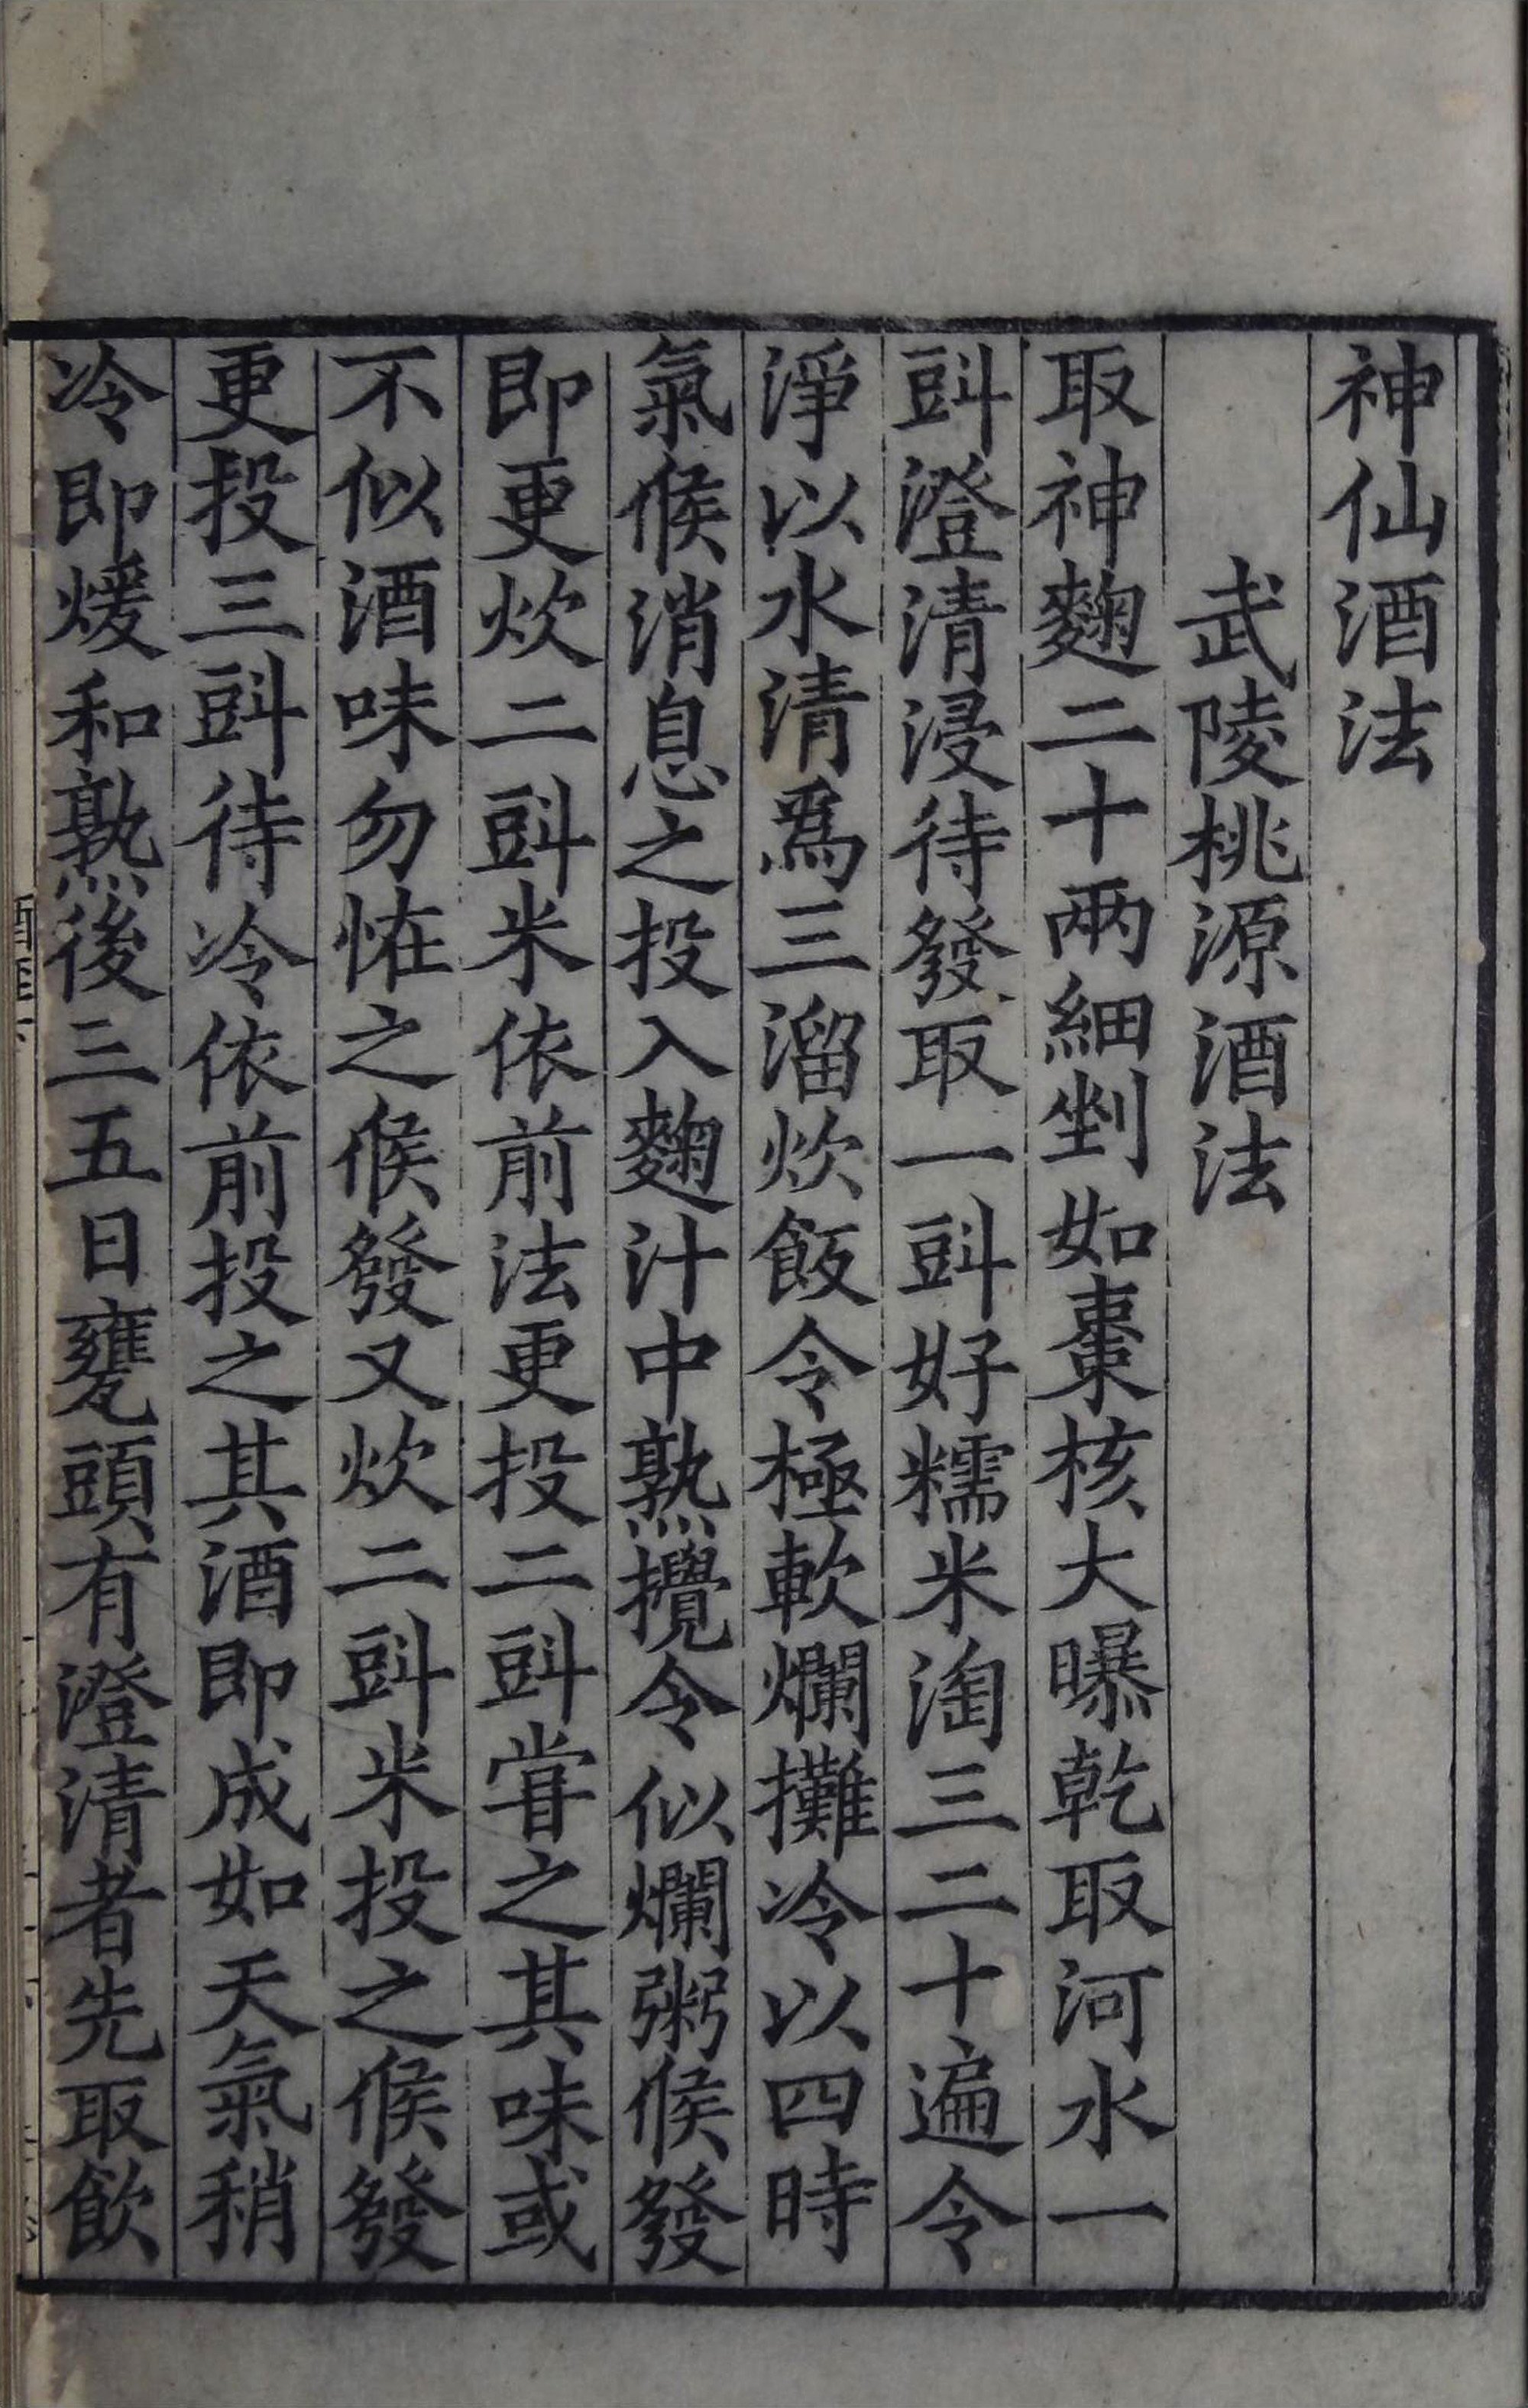 神仙酒法
武陵桃源酒法
取神麴二十兩細剉如棗核大曝乾取河水一
㪷澄清浸待發取一㪷好糯米淘三二十遍令
淨以水清爲三溜炊飯令極軟爛攤冷以四時
氣候消息之投入麴汁中熟攪令似爛粥候發
即更炊二㪷米依前法更投二㪷甞之其味或
不似酒味勿恠之候發又炊二㪷米投之候發
更投三㪷待冷依前投之其酒即成如天氣稍
冷即煖和熟後三五日甕頭有澄清者先取飲